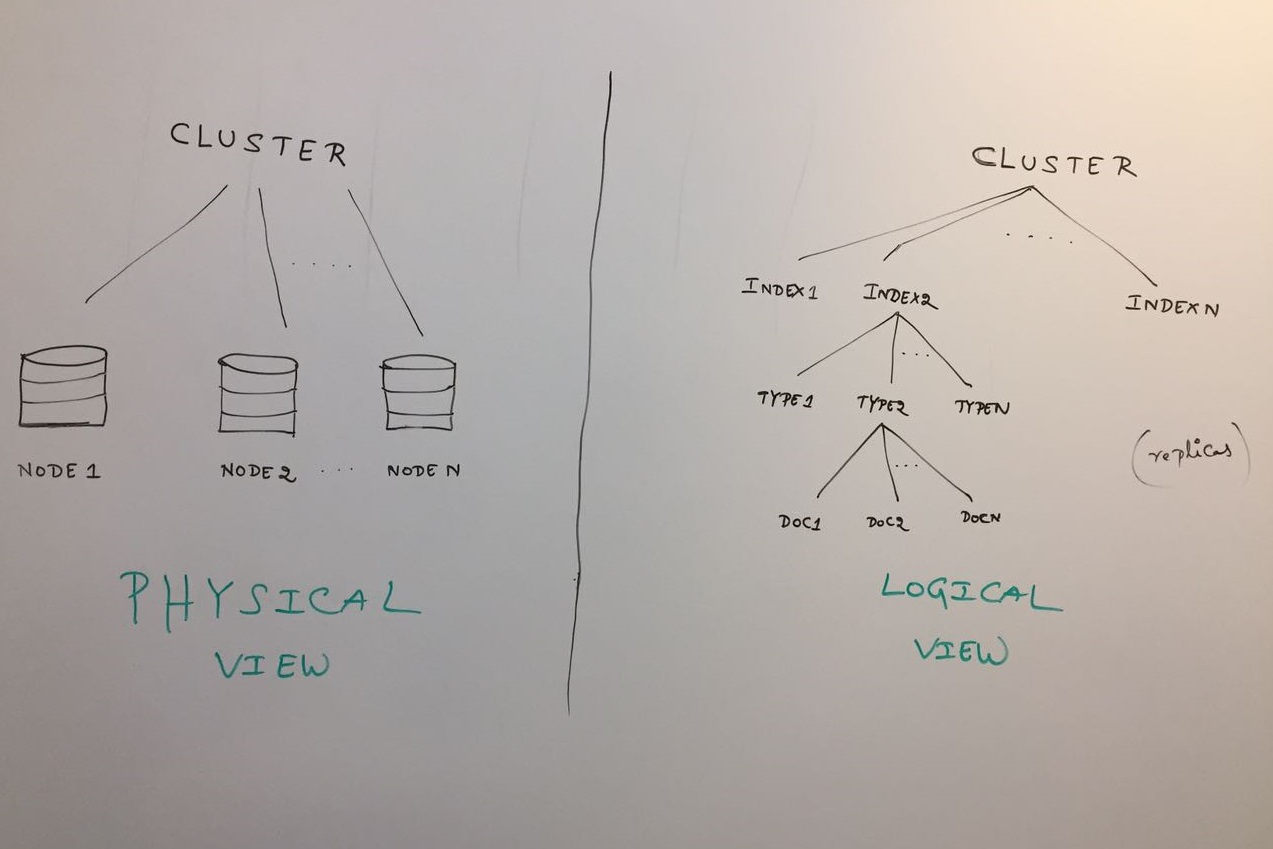 CLUSTER
....
NODE 1
NODE 2 ... NODE N
PHYSICAL
VIEW
CLUSTER
....
INDEX1 INDEX2 INDEX N
...
TYPE1 TYPE2 TYPEN
...
DOC1 DOC2 DOCN
(replicas)
LOGICAL
VIEW